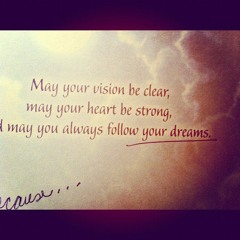 May your vision be clear,
may your heart be strong,
may you always follow your dreams.